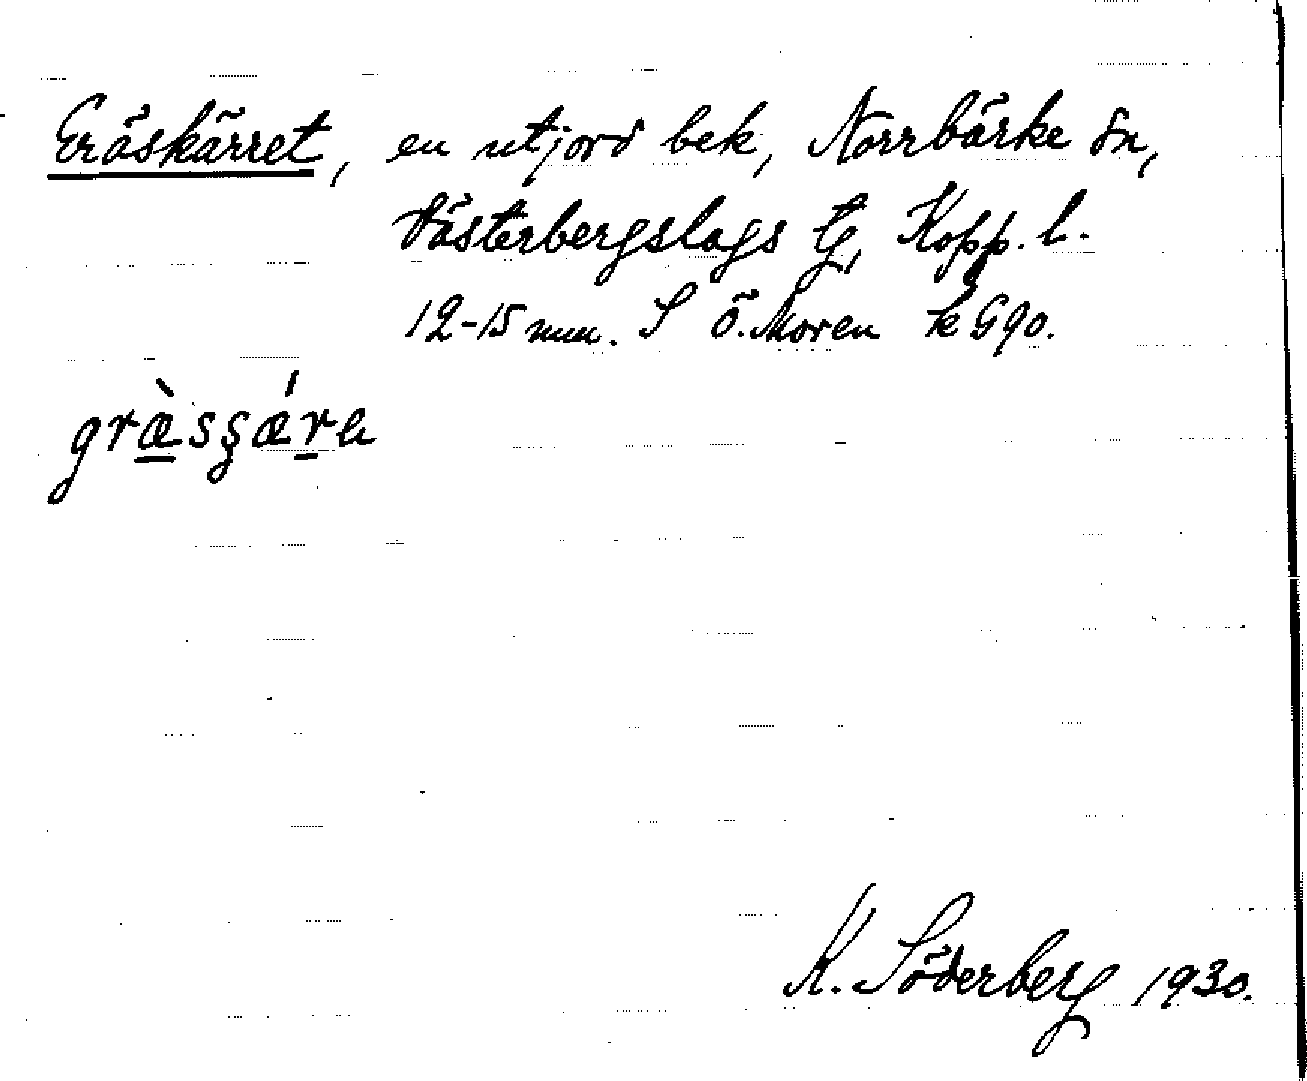 Gräskärret, en utjord bek, Norrbärke sn,
Västerbergslags tg, Kopp. l.
12-15 mm. S Ö. Moren k G90.
græ̀sʂǽra
K. Söderberg 1930.